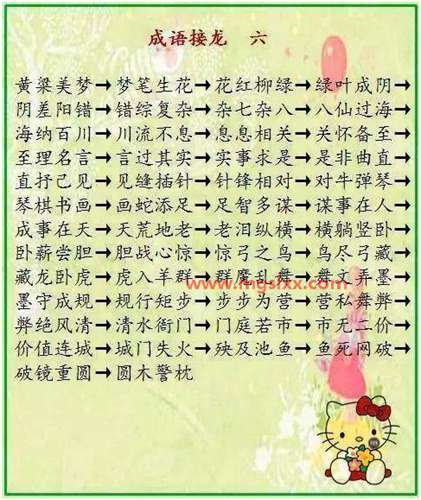 成语接龙 六
黄粱美梦→梦笔生花→花红柳绿→绿叶成阴→
阴差阳错→错综复杂→杂七杂八→八仙过海→
海纳百川→川流不息→息息相关→关怀备至→
至理名言→言过其实→实事求是→是非曲直→
直抒己见→见缝插针→针锋相对→对牛弹琴→
琴棋书画→画蛇添足→足智多谋→谋事在人→
成事在天→天荒地老→老泪纵横→横躺竖卧→
卧薪尝胆→胆战心惊→惊弓之鸟→鸟尽弓藏→
藏龙卧虎→虎入羊群→群魔乱舞→舞文弄墨→
www.mgslxx.com
墨守成规→规行矩步→步步为营→营私舞弊→
弊绝风清→清水衙门→门庭若市→市无二价→
价值连城→城门失火→殃及池鱼→鱼死网破→
破镜重圆→圆木警枕